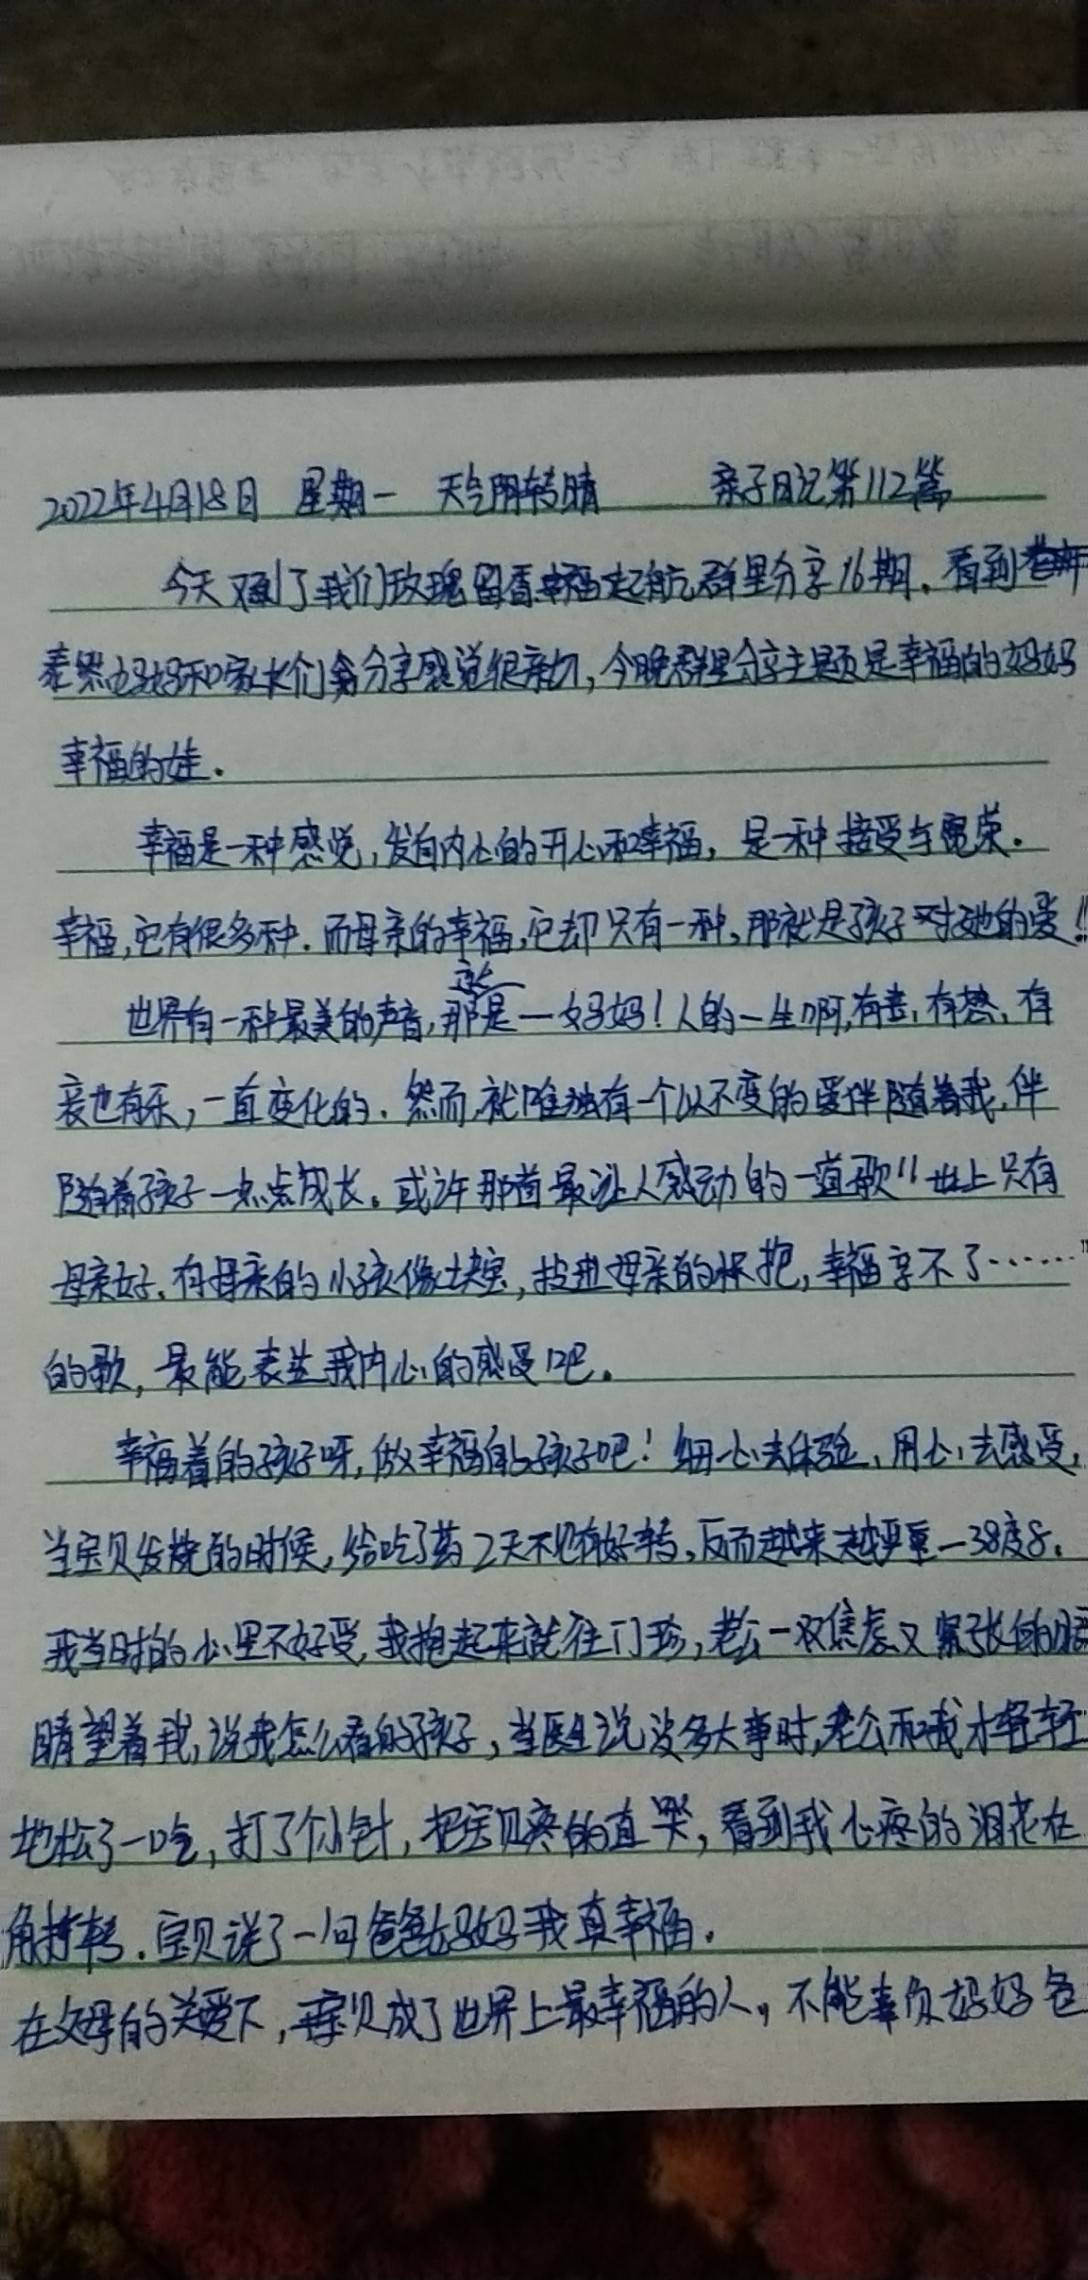 2022年4月18日 星期一 天气阴转晴 亲子日记第112篇
今天又到了我们玫瑰留香幸福起航群里分享16期，看到
泰然妈妈和家长们分享感觉很亲切，今晚群里分享主题是幸福的妈妈
幸福的娃．
幸福是一种感觉，发自内心的开心和幸福，是一种接受与宽荣．
幸福，它有很多种．而母亲的幸福，它却只有一种，那就是孩子对她的爱！！
世界有一种最美的声音，那就是一妈妈！人的一生啊，有苦，有愁，有
哀也有乐，一直变化的．然而，就唯独有一个以不变的爱伴随着我，伴
随着孩子一点点成长。或许那首最让人感动的一首歌！！世上只有
母亲好，有母亲的小孩像块宝，投进母亲的怀抱，幸福享不了……"
的歌，最能表达我内心的感受吧。
幸福着的孩子呀，做幸福的孩子吧！细心去体验、用心去感受，
当宝贝发烧的时候，给吃了药2天不见有好转，反而越来越严重一38度8．
我当时的心里不好受，我抱起来就往门珍，老公一双焦虑又紧张的眼
睛望着我，说我怎么看的孩子，当医生说没多大事时，老公和我才轻轻
地松了一口气，打了个小针，把宝贝疼的直哭，看到我心疼的泪花在
角打转．宝贝说了一句爸爸妈妈我真幸福．
在父母的关爱下，宝贝成了世界上最幸福的人，不能辜负妈妈爸